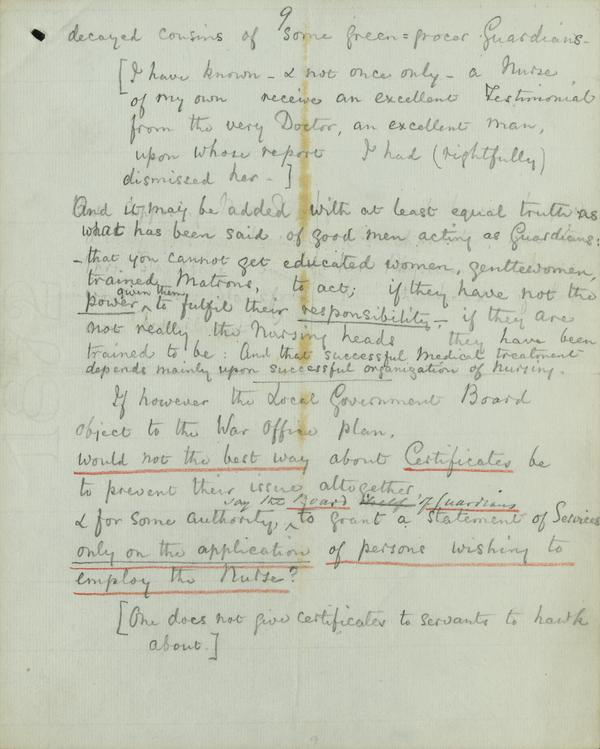 9
decayed cousins of some green=grocer Guardians-
[I have known - & not once only - a Nurse
of my own receive an excellent Testimonial
from the very Doctor, an excellent man,
upon whose report I had (rightfully)
dismissed her-]
And it may be added with at least equal truth as
what has been said of good men acting as Guardians:
-that you cannot get educated women, gentlewomen,
trained Matrons, to act; if they have not the
given them
power to fulfil their responsibility - if they are
not really the Nursing heads they have been
trained to be: And that successful Medical treatment
depends mainly upon successful organization of Nursing.
If however the Local Government Board
object to the War Office plan,
would not the best way about Certificates be
to prevent their issue altogether
say the Board itself of Guardians
& for some authority, to grant a statement of Services
only on the application of persons wishing to
employ the Nurse?
[One does not give certificates to servants to hawk
about.]